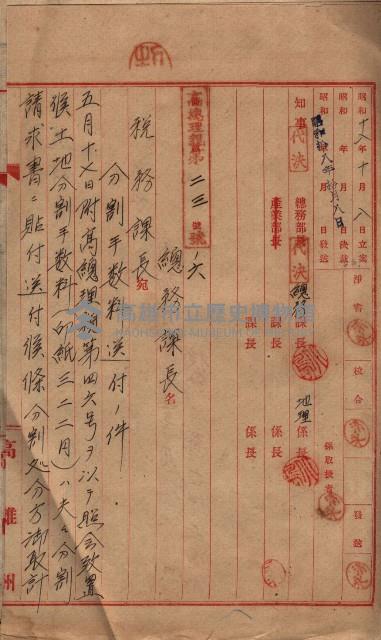 昭和十八年十月八日立案
昭和 年 月 日決裁
昭和 年 月 日發送
昭和拾八年拾月八日
淨書
校合
發送
知事
代決
總務部長
代決
產業部長
總務課長
課長
課長
地理係長
係長
係長
係取扱者
高總理親第二三號ノ六
總務課長名
稅務課長宛
分割手數料送付ノ件
五月十七日附高總理親第四六号ヲ以テ照会致置
候土地分割手数料(印紙三二二円)ハ夫々分割
請求書ニ貼付送付候條分割処分方御取計
高雄州
高雄市立歷史博物館
KAOHSIUNG MUSEUM OF HISTORY